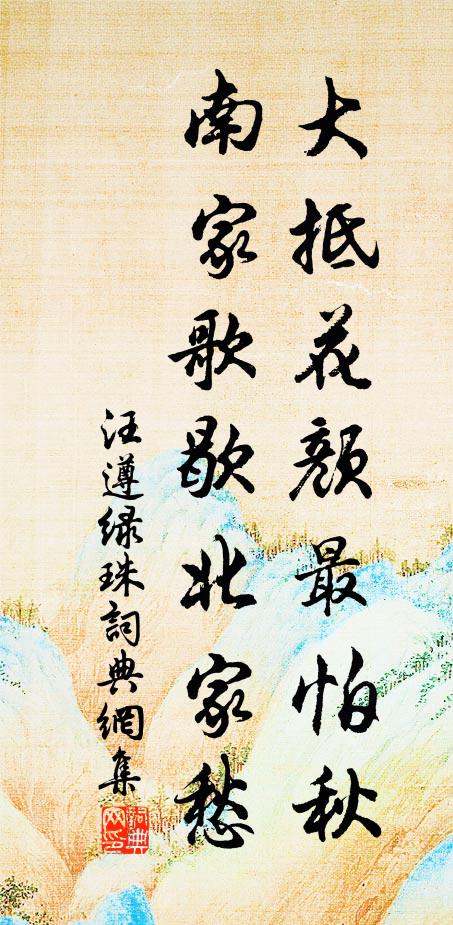 大抵花顔最怕秋
南家歌歇北家愁
汪遵緑珠詞典網集
詞典